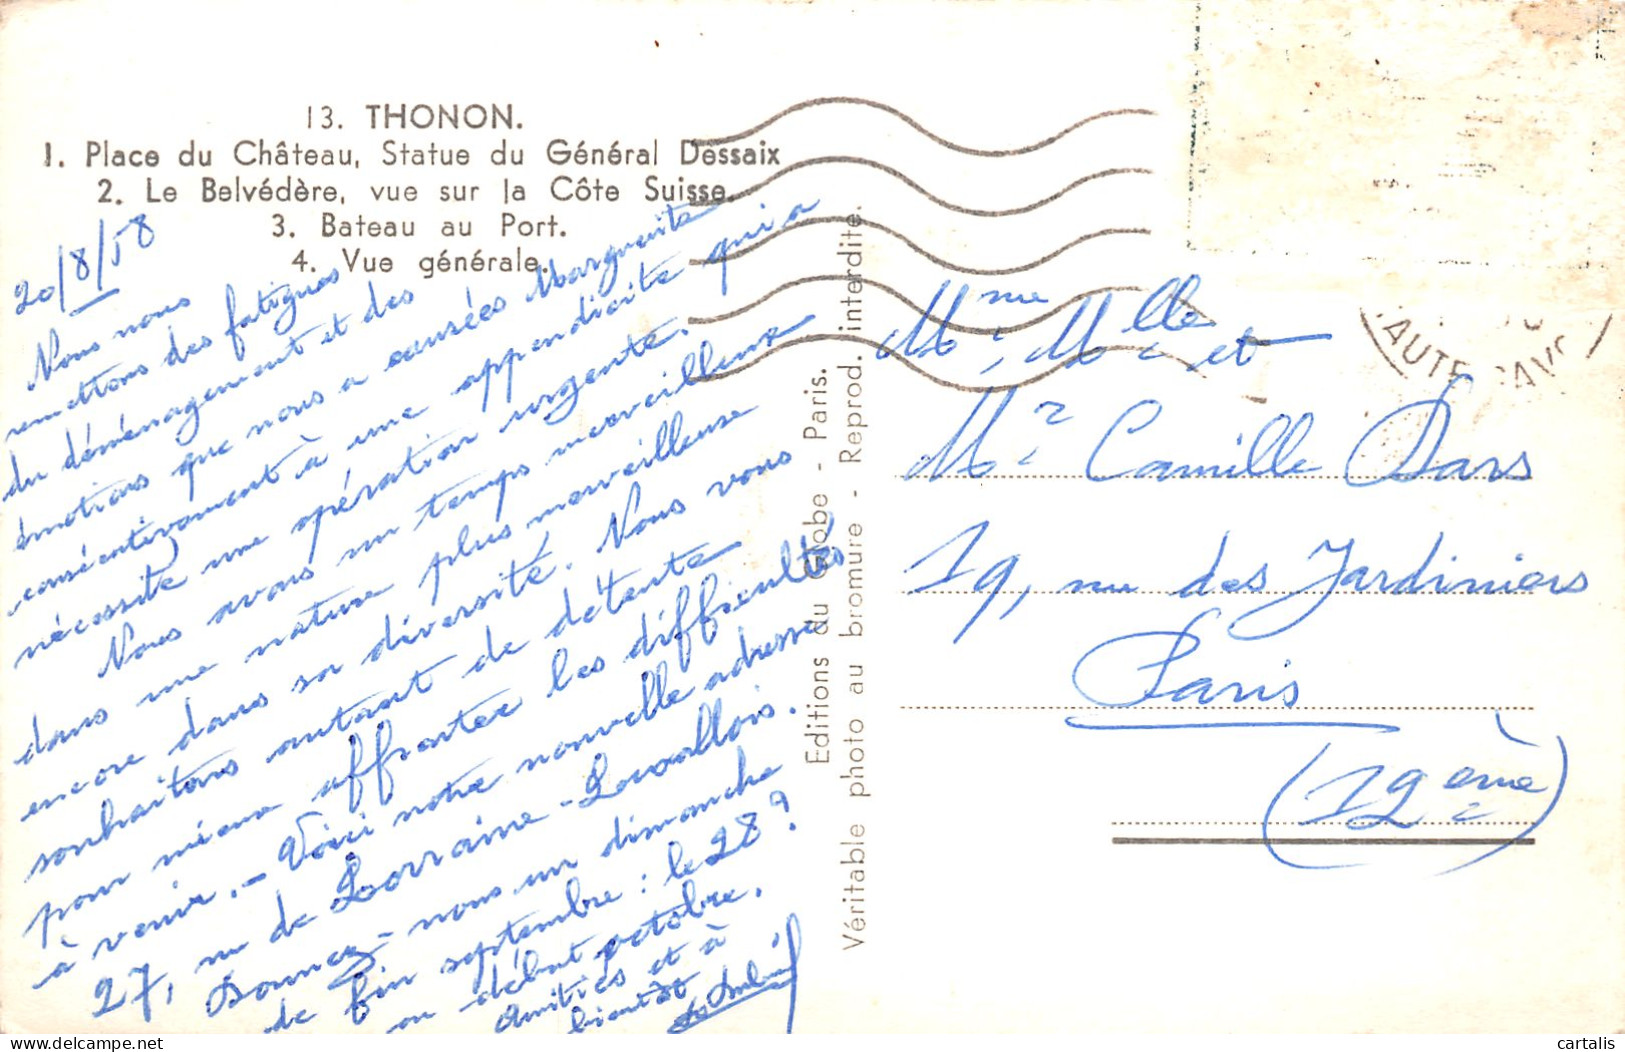 13. THONON.
1. Place du Château, Statue du Général Dessaix
2. Le Belvédère, vue sur la Côte Suisse.
3. Bateau au Port.
4. Vue générale.
20/8/58
Nous nous
remettons des fatigues
du déménagement et des
émotions que nous a causées Marguerite
consécutivement à une appendicite qui a
nécessité une opération urgente.
Nous avons un temps merveilleux
dans une nature plus merveilleuse
encore dans sa diversité. Nous vous
souhaitons autant de détente
pour mieux affronter les difficultés
à venir. - Voici notre nouvelle adresse
27, rue de Lorraine - Levallois.
Donnez-nous un dimanche
de fin septembre : le 28 ?
ou début octobre.
Amitiés et à
bientôt
Editions du Globe - Paris.
Véritable photo au bromure - Reprod. interdite.
AUTE SAVO
Mme, Mlle et
Mr Camille Dars
19, rue des Jardiniers
Paris
(12ème)
cartalis
delcampe.net